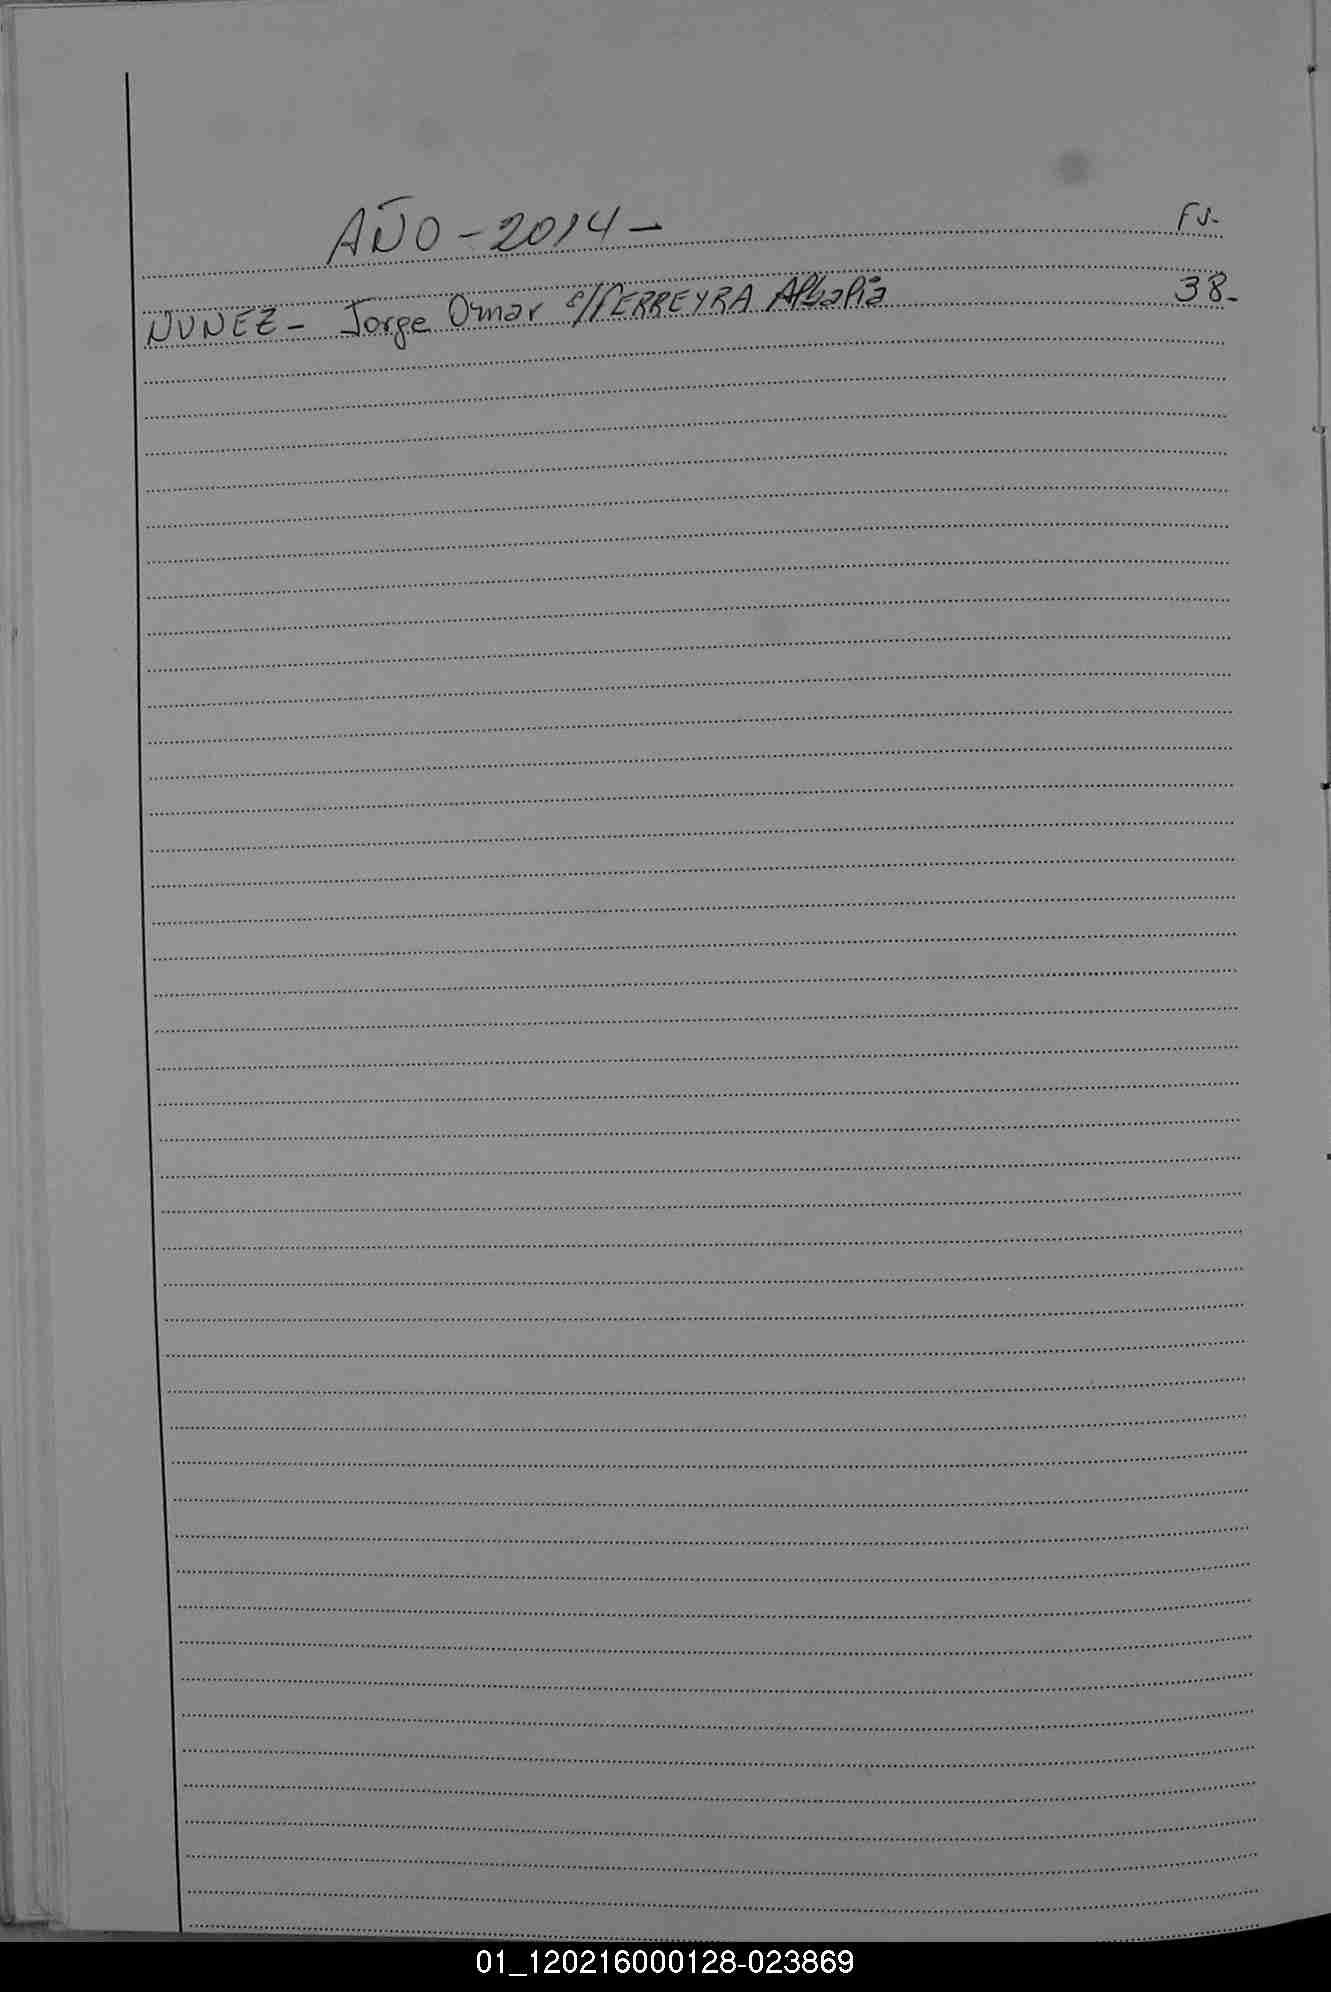 AÑO - 2014 - Fs.
NUNEZ - Jorge Omar c/FERREYRA 38.-
01_120216000128-023869